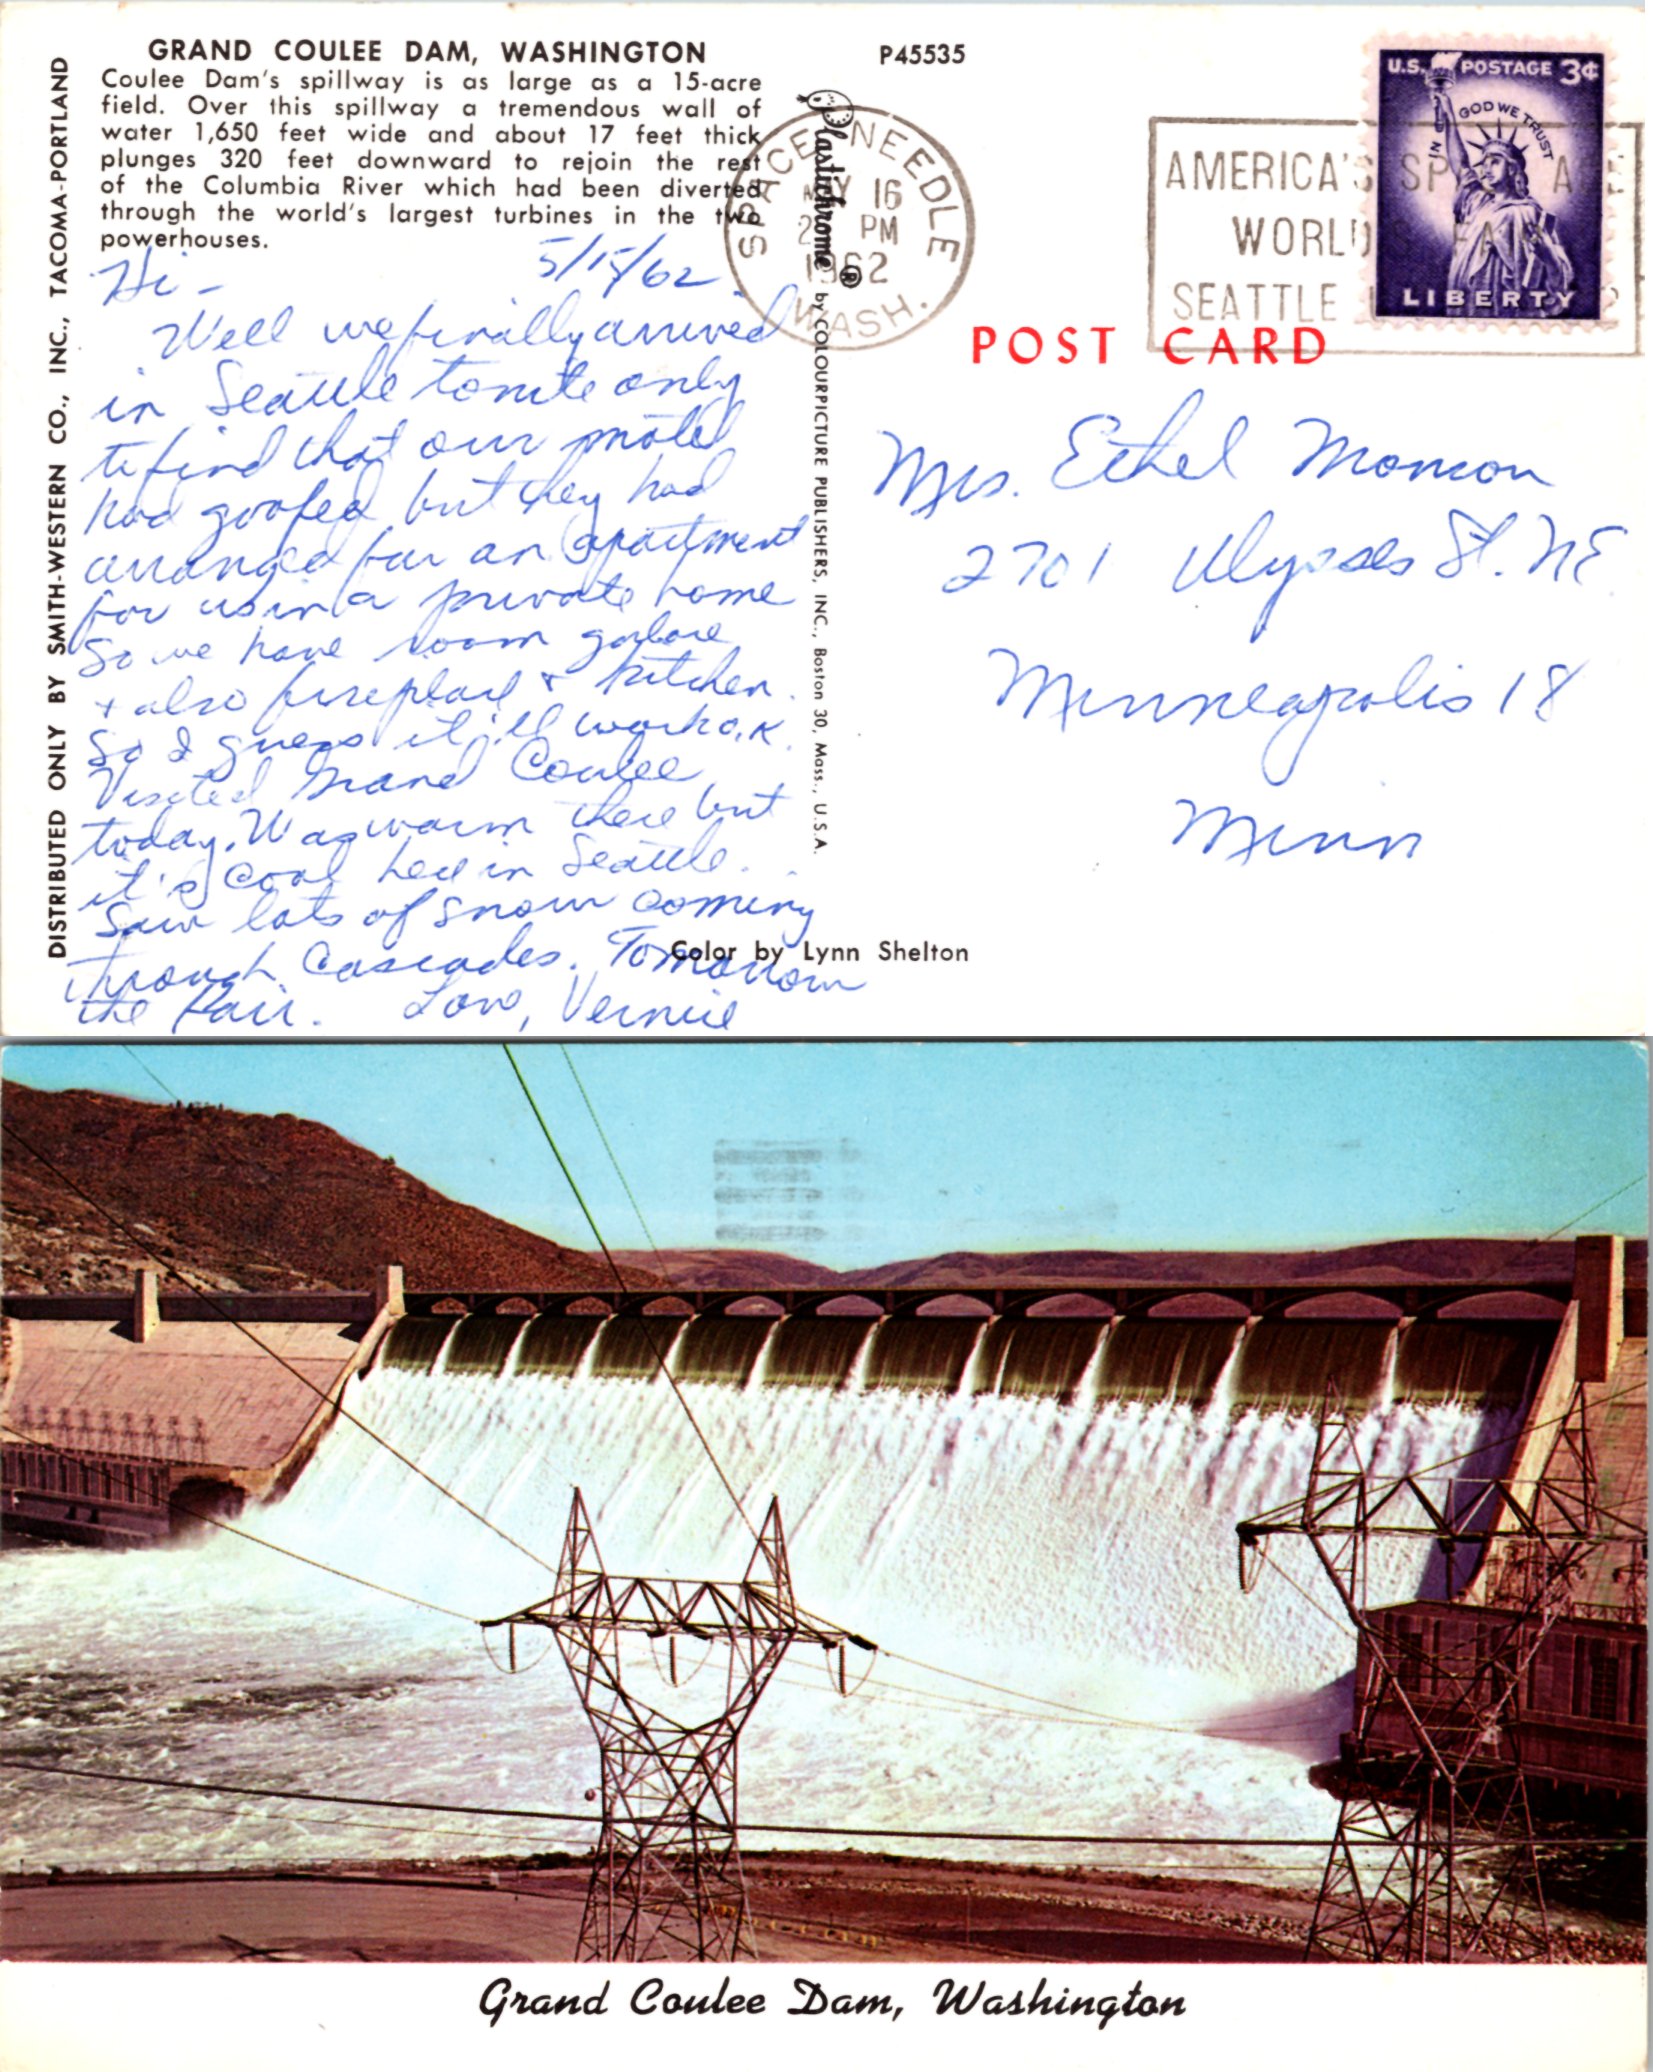 GRAND COULEE DAM, WASHINGTON
Coulee Dam's spillway is as large as a 15-acre
field. Over this spillway a tremendous wall of
water 1,650 feet wide and about 17 feet thick
plunges 320 feet downward to rejoin the rest
of the Columbia River which had been diverted
through the world's largest turbines in the two
powerhouses.
P45535
DISTRIBUTED ONLY BY SMITH-WESTERN CO., INC., TACOMA-PORTLAND
Plastichrome ® by COLOURPICTURE PUBLISHERS, INC., Boston 30, Mass., U.S.A.
SPACE NEEDLE
MAY 16
2 PM
1962
WASH.
AMERICA'S SPACE AGE
WORLD'S FAIR
SEATTLE
U.S. POSTAGE 3¢
IN GOD WE TRUST
LIBERTY
POST CARD
5/15/62
Hi -
Well we finally arrived
in Seattle tonite only
to find that our motel
had goofed but they had
arranged for an apartment
for us in a private home
So we have room galore
+ also fireplace & kitchen.
So I guess it'll work o.k.
Visited Grand Coulee
today. Was warm there but
it's cool here in Seattle.
Saw lots of snow coming
through Cascades. Tomorrow
the Fair. Love, Vernice
Mrs. Ethel Monson
2701 Ulysses St. NE
Minneapolis 18
Minn
Color by Lynn Shelton
Grand Coulee Dam, Washington